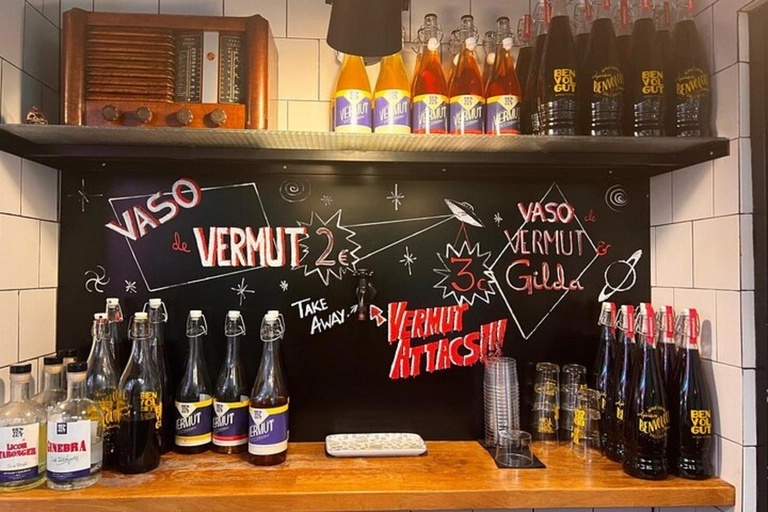 VERMUT
VERMUT
VERMUT
VERMUT
VERMUT
BEN
VOL
GUT
BENVOLGUT
BEN
VOL
GUT
BENVOLGUT
VASO
de VERMUT 2€
3€
VASO de
VERMUT &
Gilda
TAKE
AWAY
VERMUT
ATTACS!!!
LICOR
GINEBRA
VERMUT
VERMUT
VERMUT
BEN
VOL
GUT
BEN
VOL
GUT